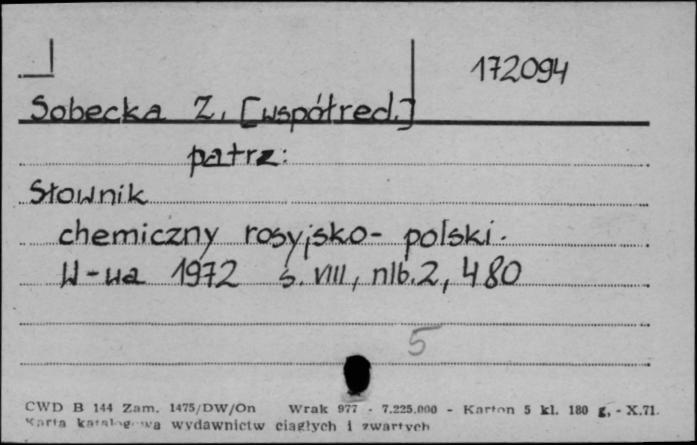 172094
Sobecka Z. [współred.]
patrz:
Słownik
chemiczny rosyjsko-polski.
W-wa 1972 s. VIII, nlb. 2, 480
5
CWD B 144 Zam. 1475/DW/On Wrak 977 - 7.225.000 - Karton 5 kl. 180 g. - X.71.
Karta katalogowa wydawnictw ciągłych i zwartych